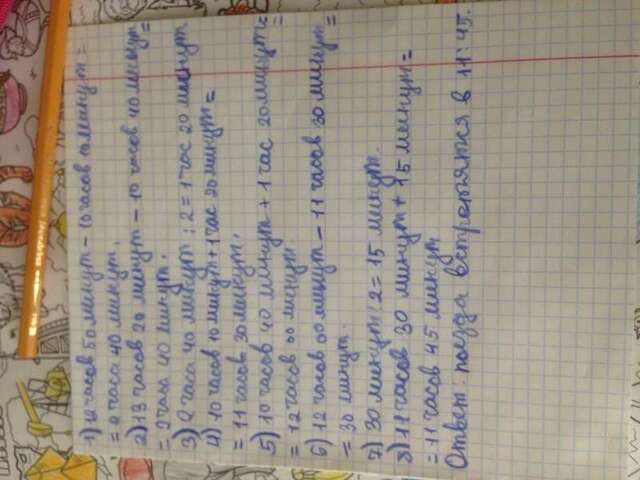 1) 12 часов 50 минут - 10 часов 10 минут =
= 2 часа 40 минут.
2) 13 часов 20 минут - 10 часов 40 минут =
= 2 часа 40 минут.
3) 2 часа 40 минут : 2 = 1 час 20 минут.
4) 10 часов 10 минут + 1 час 20 минут =
= 11 часов 30 минут.
5) 10 часов 40 минут + 1 час 20 минут =
= 12 часов 00 минут.
6) 12 часов 00 минут - 11 часов 30 минут =
= 30 минут.
7) 30 минут : 2 = 15 минут.
8) 11 часов 30 минут + 15 минут =
= 11 часов 45 минут
Ответ: поезда встретятся в 11:45.